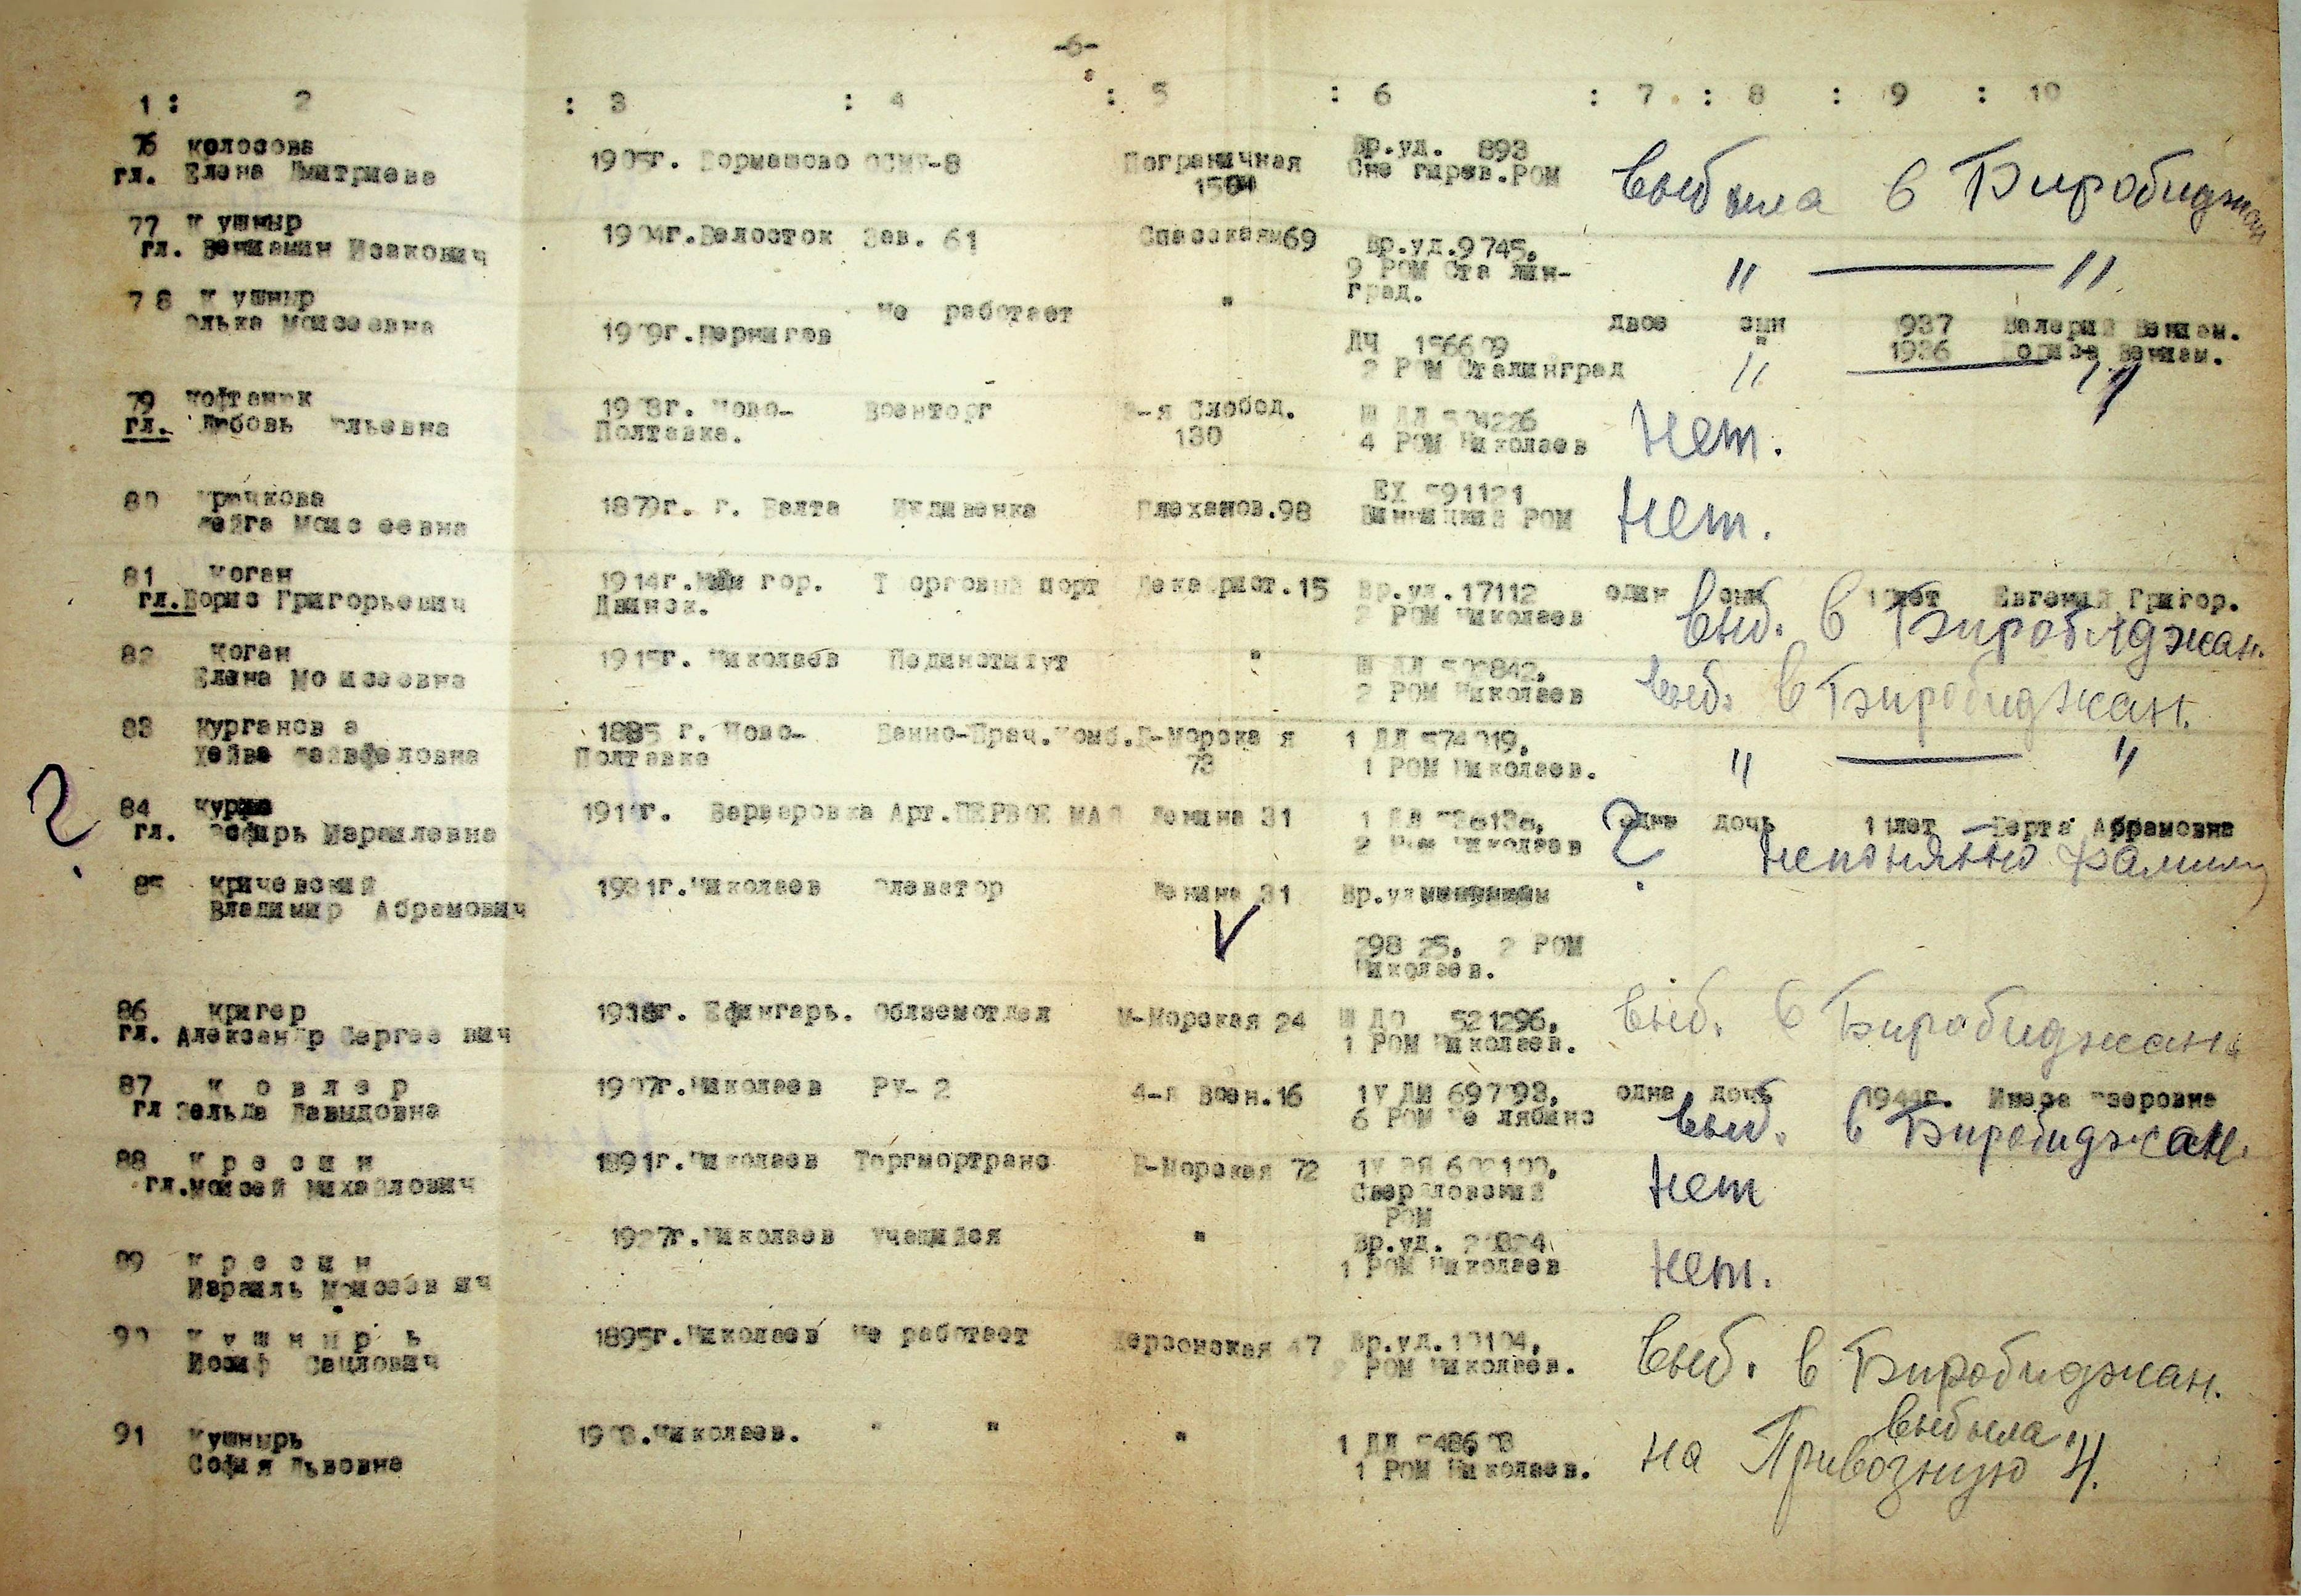 -6-
1 : 2 : 3 : 4 : 5 : 6 : 7 : 8 : 9 : 10
76 Колосова
гл. Елена Дмитриева 1905г. ОСМУ-8 Пограничная Вр.уд. 893
РОМ
выбыла в Биробиджан
77 К ушныр
гл. Вениамин Исакович 1904г. Белосток Зав. 61 Спасская 69 Вр.уд.9745,
9 РОМ Ста лин-
град.
" — "
78 К ушныр
Элька Моисеевна 1909г. Чернигов Не работает " ДЧ 156609
2 РОМ Сталинград
двое сын 1937 Валерий Вениам.
" 1936 Борис Вениам.
" — "
79 Кофтанюк
гл. Любовь Ильевна 1908г. Ново-
Полтавка. Военторг Слобод.
130
4 РОМ Николаев
Нет.
80 Крючкова
Фейга Моис еевна 1879г. г. Балта Иждивенка Плеханов.98 ЕХ 591121
РОМ
Нет.
81 Коган
гл. Борис Григорьевич 1914г. гор.
Двинск. порт Декабрист.15 Вр.уд.17112
2 РОМ Николаев
один сын лет Евгений Григор.
выб. в Биробиджан.
82 Коган
Елена Мо исеевна 1915г. Николаев Пединститут "
2 РОМ Николаев
выб. в Биробиджан.
83 Курганов а
Хейве 1885 г. Ново-
Полтавка Б-Морска я
73 1 ДЛ 574019,
1 РОМ Николаев.
" — "
?
84
гл. Эсфирь Израилевна Варваровка Арт. ПЕРВОЕ МАЯ Ленина 31
2 Ром Николаев
одна дочь 11лет Берта Абрамовна
? непонятно фамил
85 Кричевский
Владимир Абрамович 1931г. Николаев Элеватор Ленина 31 Вр.уд
V
298 25, 2 РОМ
Николаев.
86 Кригер
гл. Александр Сергее вич Ефингарь. Облземотдел М-Морская 24 521296,
1 РОМ Николаев.
выб. в Биробиджан.
87 К о в л е р
гл Зельда Давыдовна 1907г. Николаев РУ- 2 4-я Воен.16 1У ДИ 697098,
6 РОМ Че лябинс
одна дочь 1944г.
выб. в Биробиджан.
88 К р е с и н
гл. Моисей Михайлович 1891г. Николаев Торгмортранс Б-Морская 72
Свердловский
РОМ
нет
89 К р е с и н
Израиль Моисеев ич 1927г. Николаев Учащийся " Вр.уд.
1 РОМ Николаев
нет.
90 К у ш н и р ь
Иосиф Саулович 1895г. Николаев Не работает Херсонская 47 Вр.уд.10104,
2 РОМ Николаев.
выб. в Биробиджан.
91 Кушнирь
София Львовна 1908. Николаев. " " " 1 ДЛ 548608
1 РОМ Николаев.
выбыла
на Привозную 4.